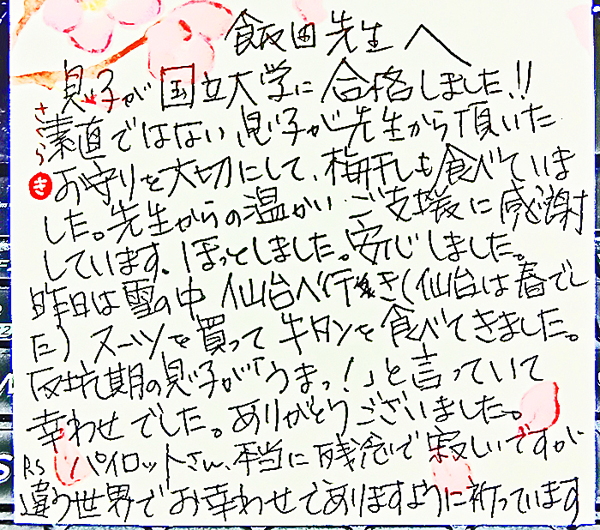 飯田先生へ
息子が国立大学に合格しました!!
素直ではない息子が先生から頂いた
お守りを大切にして、梅干しも食べていま
した。先生からの温かいご支援に感謝
しています。ほっとしました。安心しました。
昨日は雪の中 仙台へ行き(仙台は春でし
た)スーツを買って牛タンを食べてきました。
反抗期の息子が「うまっ!」と言っていて
幸わせでした。ありがとうございました。
P.S パイロットさん、本当に残念で寂しいですが
違う世界でお幸わせでありますように祈っています
さくら
き